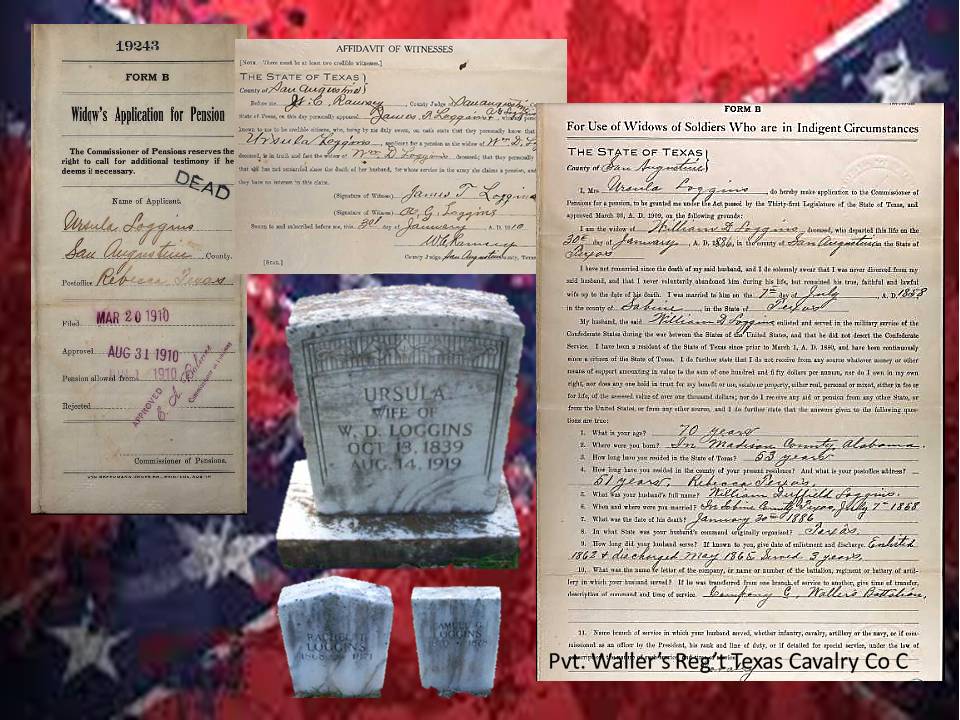 19243
FORM B
Widow's Application for Pension
The Commissioner of Pensions reserves the
right to call for additional testimony if he
deems it necessary.
DEAD
Name of Applicant.
Ursula Loggins
San Augustine County.
Postoffice Rebecca Texas
Filed MAR 20 1910
Approved AUG 31 1910
Pension allowed from 1910
APPROVED
Rejected
Commissioner of Pensions.
AFFIDAVIT OF WITNESSES
[Note. There must be at least two credible witnesses.]
THE STATE OF TEXAS
County of San Augustine
Before me W. C. Ramsey, County Judge San Augustine
State of Texas, on this day personally appeared James T Loggins
known to me to be credible citizens, who, being by me duly sworn, on oath state that they personally know that
Ursula Loggins, applicant for a pension as the widow of Wm D
deceased, is in truth and fact the widow of Wm D Loggins, deceased; that they personally
that she has not remarried since the death of her husband, for whose service in the army she claims a pension, and
they have no interest in this claim.
(Signature of Witness) James T Loggins
(Signature of Witness) G. Loggins
Sworn to and subscribed before me, this 30 day of January A. D. 1910
W C Ramsey
County Judge San Augustine County, Texas
[Seal]
FORM B
For Use of Widows of Soldiers Who are in Indigent Circumstances
THE STATE OF TEXAS
County of San Augustine
I, Mrs Ursula Loggins, do hereby make application to the Commissioner of
Pensions for a pension, to be granted me under the Act passed by the Thirty-first Legislature of the State of Texas, and
approved March 26, A. D. 1909, on the following grounds:
I am the widow of William D Loggins, deceased, who departed this life on the
30th day of January, A. D. 1886, in the county of San Augustine in the State of
Texas
I have not remarried since the death of my said husband, and I do solemnly swear that I was never divorced from my
said husband, and that I never voluntarily abandoned him during his life, but remained his true, faithful and lawful
wife up to the date of his death. I was married to him on the 7th day of July, A. D. 1858
in the county of Sabine, in the State of Texas
My husband, the said William D Loggins enlisted and served in the military service of the
Confederate States during the war between the States of the United States, and that he did not desert the Confederate
Service. I have been a resident of the State of Texas since prior to March 1, A. D. 1880, and have been continuously
since a citizen of the State of Texas. I do further state that I do not receive from any source whatever money or other
means of support amounting in value to the sum of one hundred and fifty dollars per annum, nor do I own in my own
right, nor does any one hold in trust for my benefit or use, estate or property, either real, personal or mixed, either in fee or
for life, of the assessed value of over one thousand dollars; nor do I receive any aid or pension from any other State, or
from the United States, or from any other source, and I do further state that the answers given to the following ques-
tions are true:
1. What is your age? 70 years
2. Where were you born? In Madison County Alabama.
3. How long have you resided in the State of Texas? 53 years
4. How long have you resided in the county of your present residence? And what is your postoffice address?
51 years. Rebecca Texas.
5. What was your husband's full name? William Duffield Loggins.
6. When and where were you married? In Sabine County, Texas, July 7th 1858
7. What was the date of his death? January 30th 1886
8. In what State was your husband's command originally organized? Texas.
9. How long did your husband serve? If known to you, give date of enlistment and discharge. Enlisted
1862 & discharged May 1865 Served 3 years.
10. What was the name or letter of the company, or name or number of the battalion, regiment or battery of artil-
lery in which your husband served? If he was transferred from one branch of service to another, give time of transfer,
description of command and time of service. Company C, Wallers Battalion.
11. Name branch of service in which your husband served, whether infantry, cavalry, artillery or the navy, or if com-
missioned as an officer by the President, his rank and line of duty, or if detailed for special service, under the law of
Pvt. Waller's Reg't Texas Cavalry Co C
URSULA
WIFE OF
W. D. LOGGINS
OCT. 13, 1839
AUG. 14, 1919
RACHEL T.
LOGGINS
LOGGINS